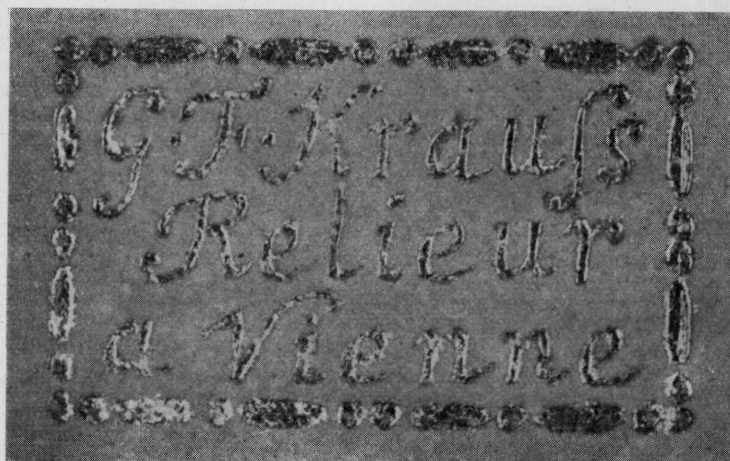 G.F.Krauſs
Relieur
a Vienne